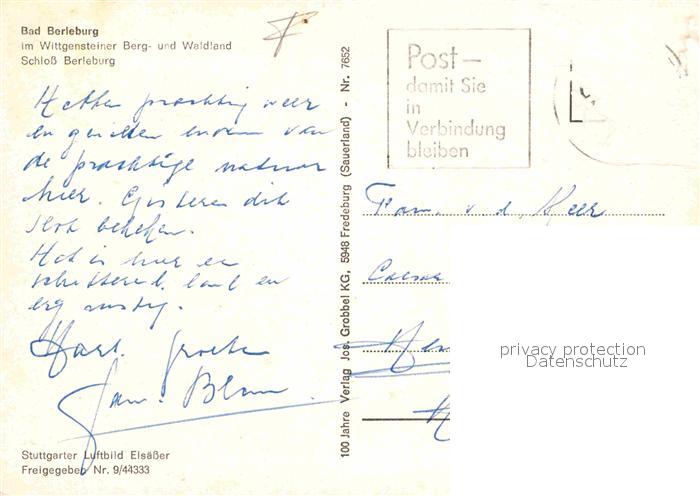 Bad Berleburg
im Wittgensteiner Berg- und Waldland
Schloß Berleburg
Hebben prachtig weer
en genieten enorm van
de prachtige natuur
hier. Gisteren dit
slot bekeken.
Het is hier een
schitterend land en
erg rustig.
Hart. Groeten
Fam. Blom
Stuttgarter Luftbild Elsäßer
Freigegeben Nr. 9/44333
100 Jahre Verlag Jos. Grobbel KG, 5948 Fredeburg (Sauerland) - Nr. 7652
Post –
damit Sie
in
Verbindung
bleiben
Fam. v. d. Heer
privacy protection
Datenschutz